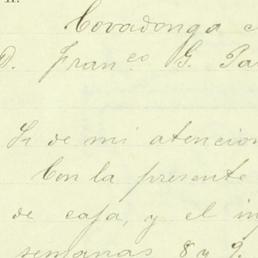 Covadonga
D. Fran.co G.
de mi atencion
Con la presente
de caja, y el
semanas 8 y 9.